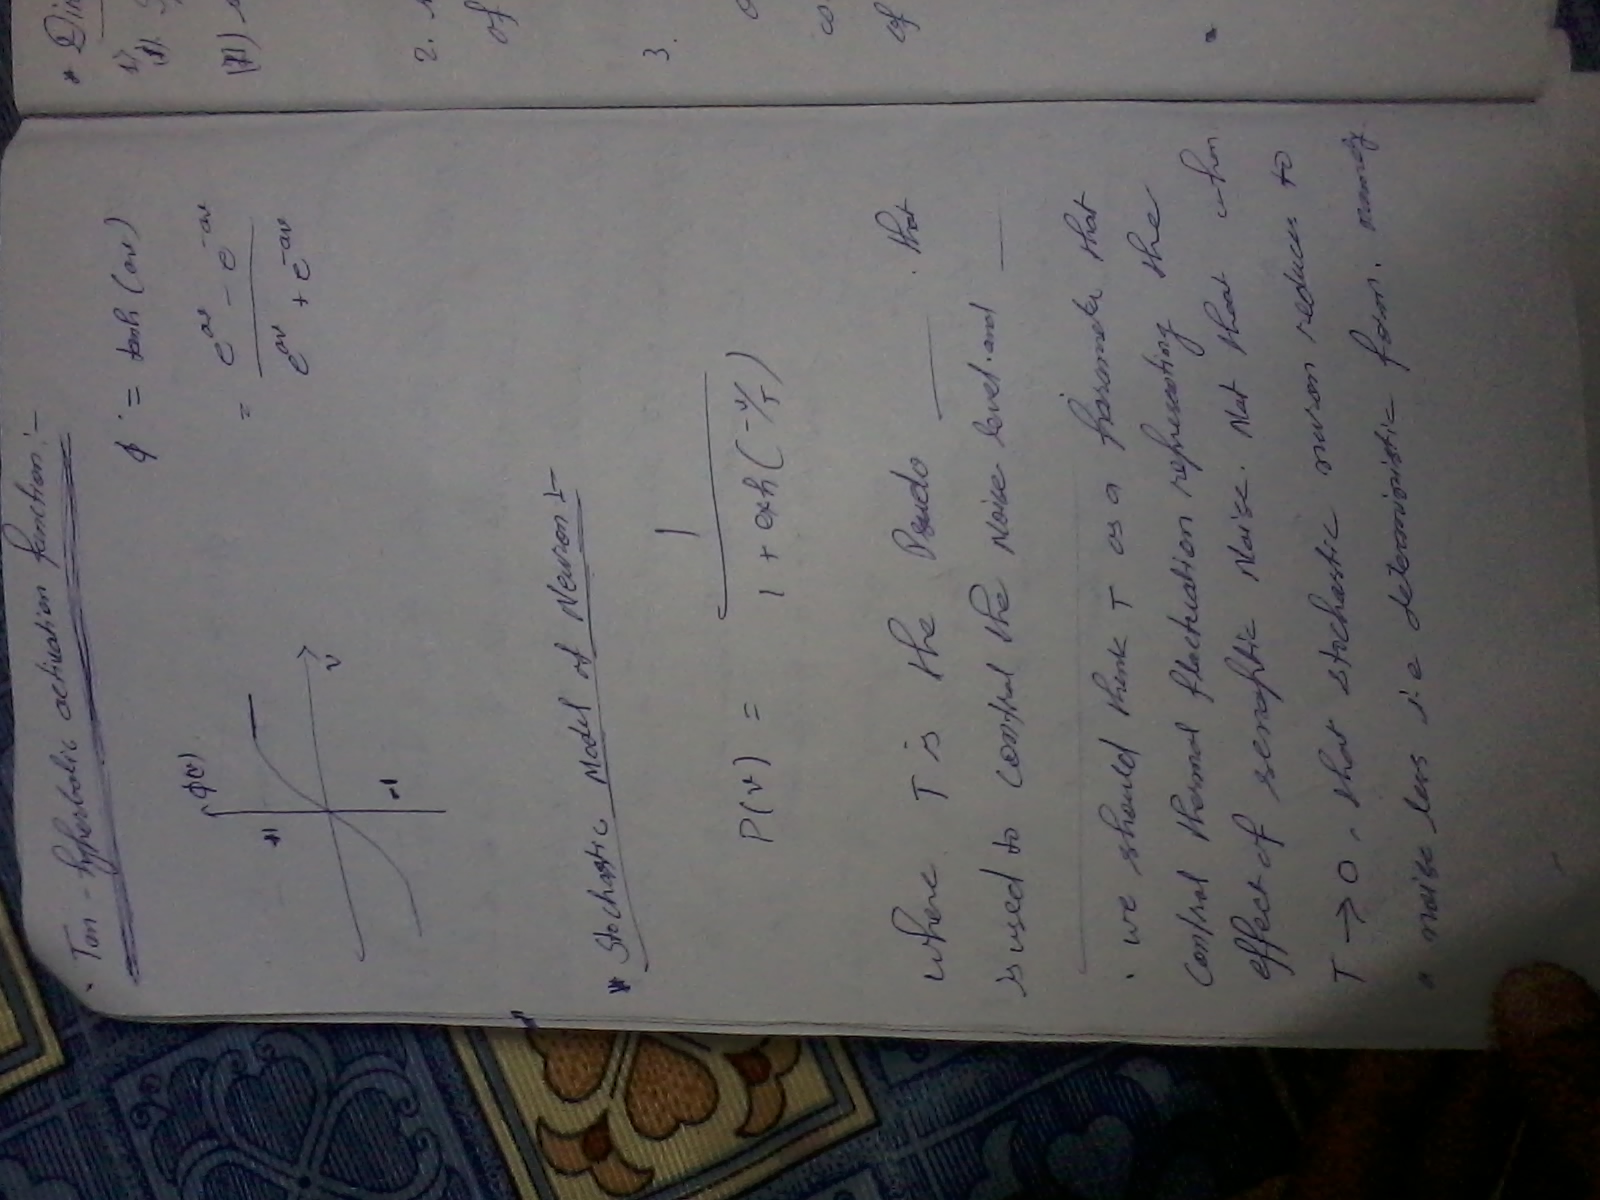 · Tan - hyperbolic activation function :-
φ(v)
+1
-1
v
φ = tanh (av)
= e^av - e^-av
e^av + e^-av
* Stochastic Model of Neuron :-
P(v) = 1
1 + exp (-v/T)
where T is the Pseudo ____ . that
is used to control the Noise level. and __
· we should think T as a parameter that
control thermal fluctuation representing the
effect of Noise. Not that when
T → 0, that stochastic neuron reduces to
a noise less i.e deterministic form.
*
1)
2.
of
3.
co
of